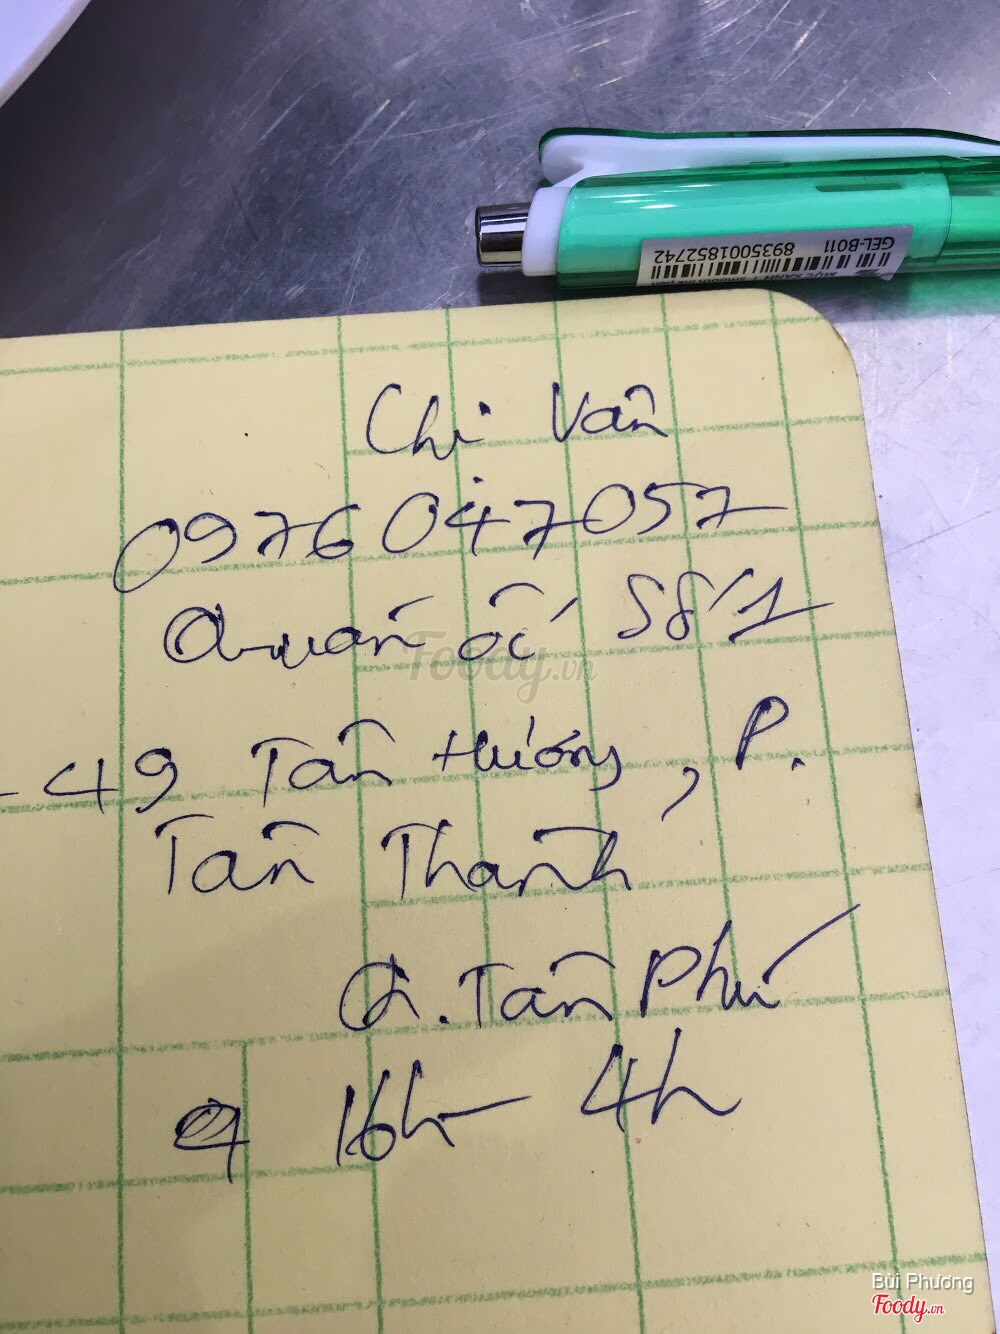 GEL-B011
8935001852742
Chị Vân
0976 047 057
Quán ốc Số 1
49 Tân Hương, P.
Tân Thành
Q. Tân Phú
16h - 4h
Foody.vn
Bùi Phương
Foody.vn